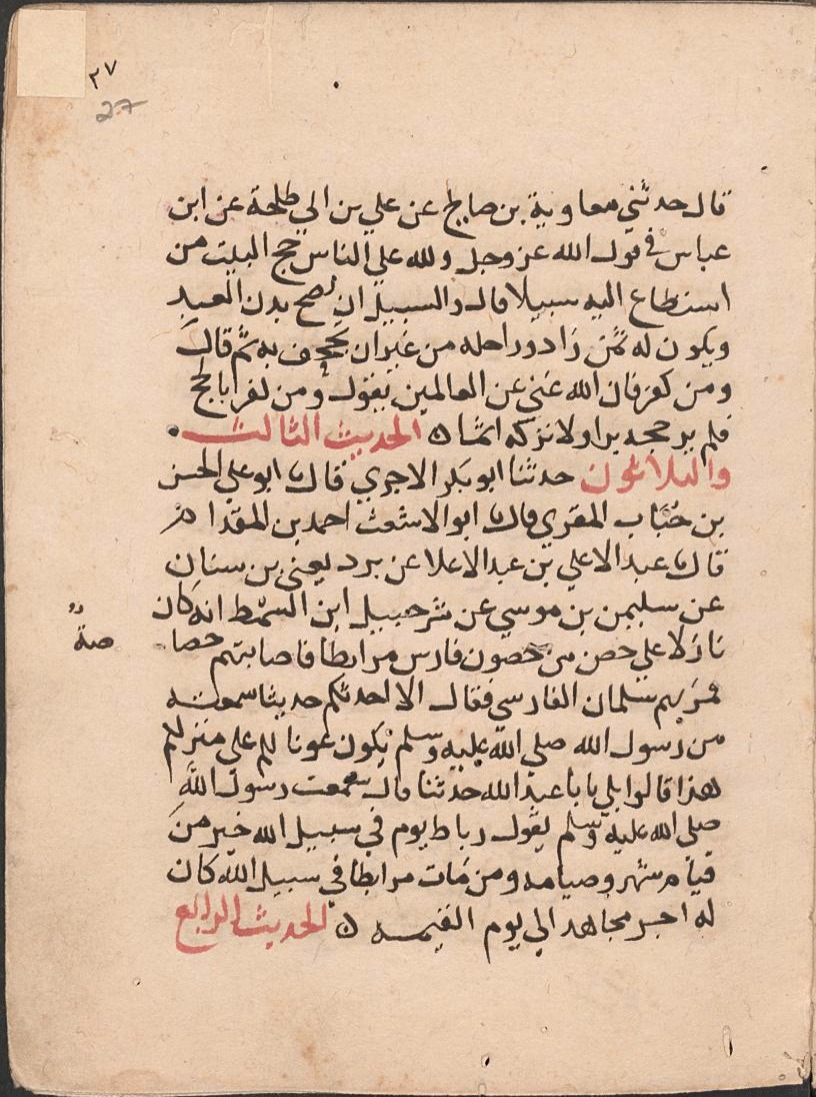 ٢٧
27
قال حدثني معاوية بن صالح عن علي بن ابي طلحة عن ابن
عباس في قول الله عز وجل ولله علي الناس حج البيت من
استطاع اليه سبيلا قال والسبيل ان يصح بدن العبد
ويكون له ثمن زاد وراحله من غير ان يجحف به ثم قال
ومن كفر فان الله غني عن العالمين يقول ومن كفر بالحج
فلم ير حجه برا ولا تركه اثما ه الحديث الثالث
والثلاثون حدثنا ابو بكر الاجري قال ثنا ابو علي الحسن
بن حباب المقري قال ثنا ابو الاشعث احمد بن المقدام
قال ثنا عبد الاعلي بن عبد الاعلا عن برد يعني بن سنان
عن سليمن بن موسي عن شرحبيل ابن السمط انه كان
نازلا علي حصن من حصون فارس مرابطا فاصابتهم خصا
صة
فمر بهم سلمان الفارسي فقال الا احدثكم حديثا سمعته
من رسول الله صلي الله عليه وسلم يكون عونا لكم علي منزلكم
هذا قالوا بلي يابا عبد الله حدثنا قال سمعت رسول الله
صلي الله عليه وسلم يقول رباط يوم في سبيل الله خير من
قيام شهر وصيامه ومن مات مرابطا في سبيل الله كان
له اجر مجاهد الي يوم القيمه ه الحديث الرابع